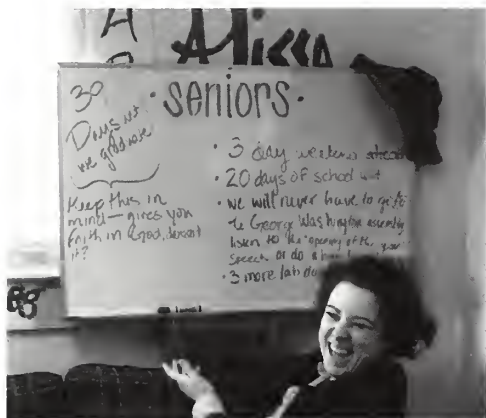 A
Alicca
30
Days until
we graduate
Keep this in
mind — gives you
faith in God, doesn't
it?
• seniors •
• 3 day weekend ahead
• 20 days of school
• we will never have to go to
the George Washington assembly
listen to the "opening of the year"
speech or do a
• 3 more lab
88